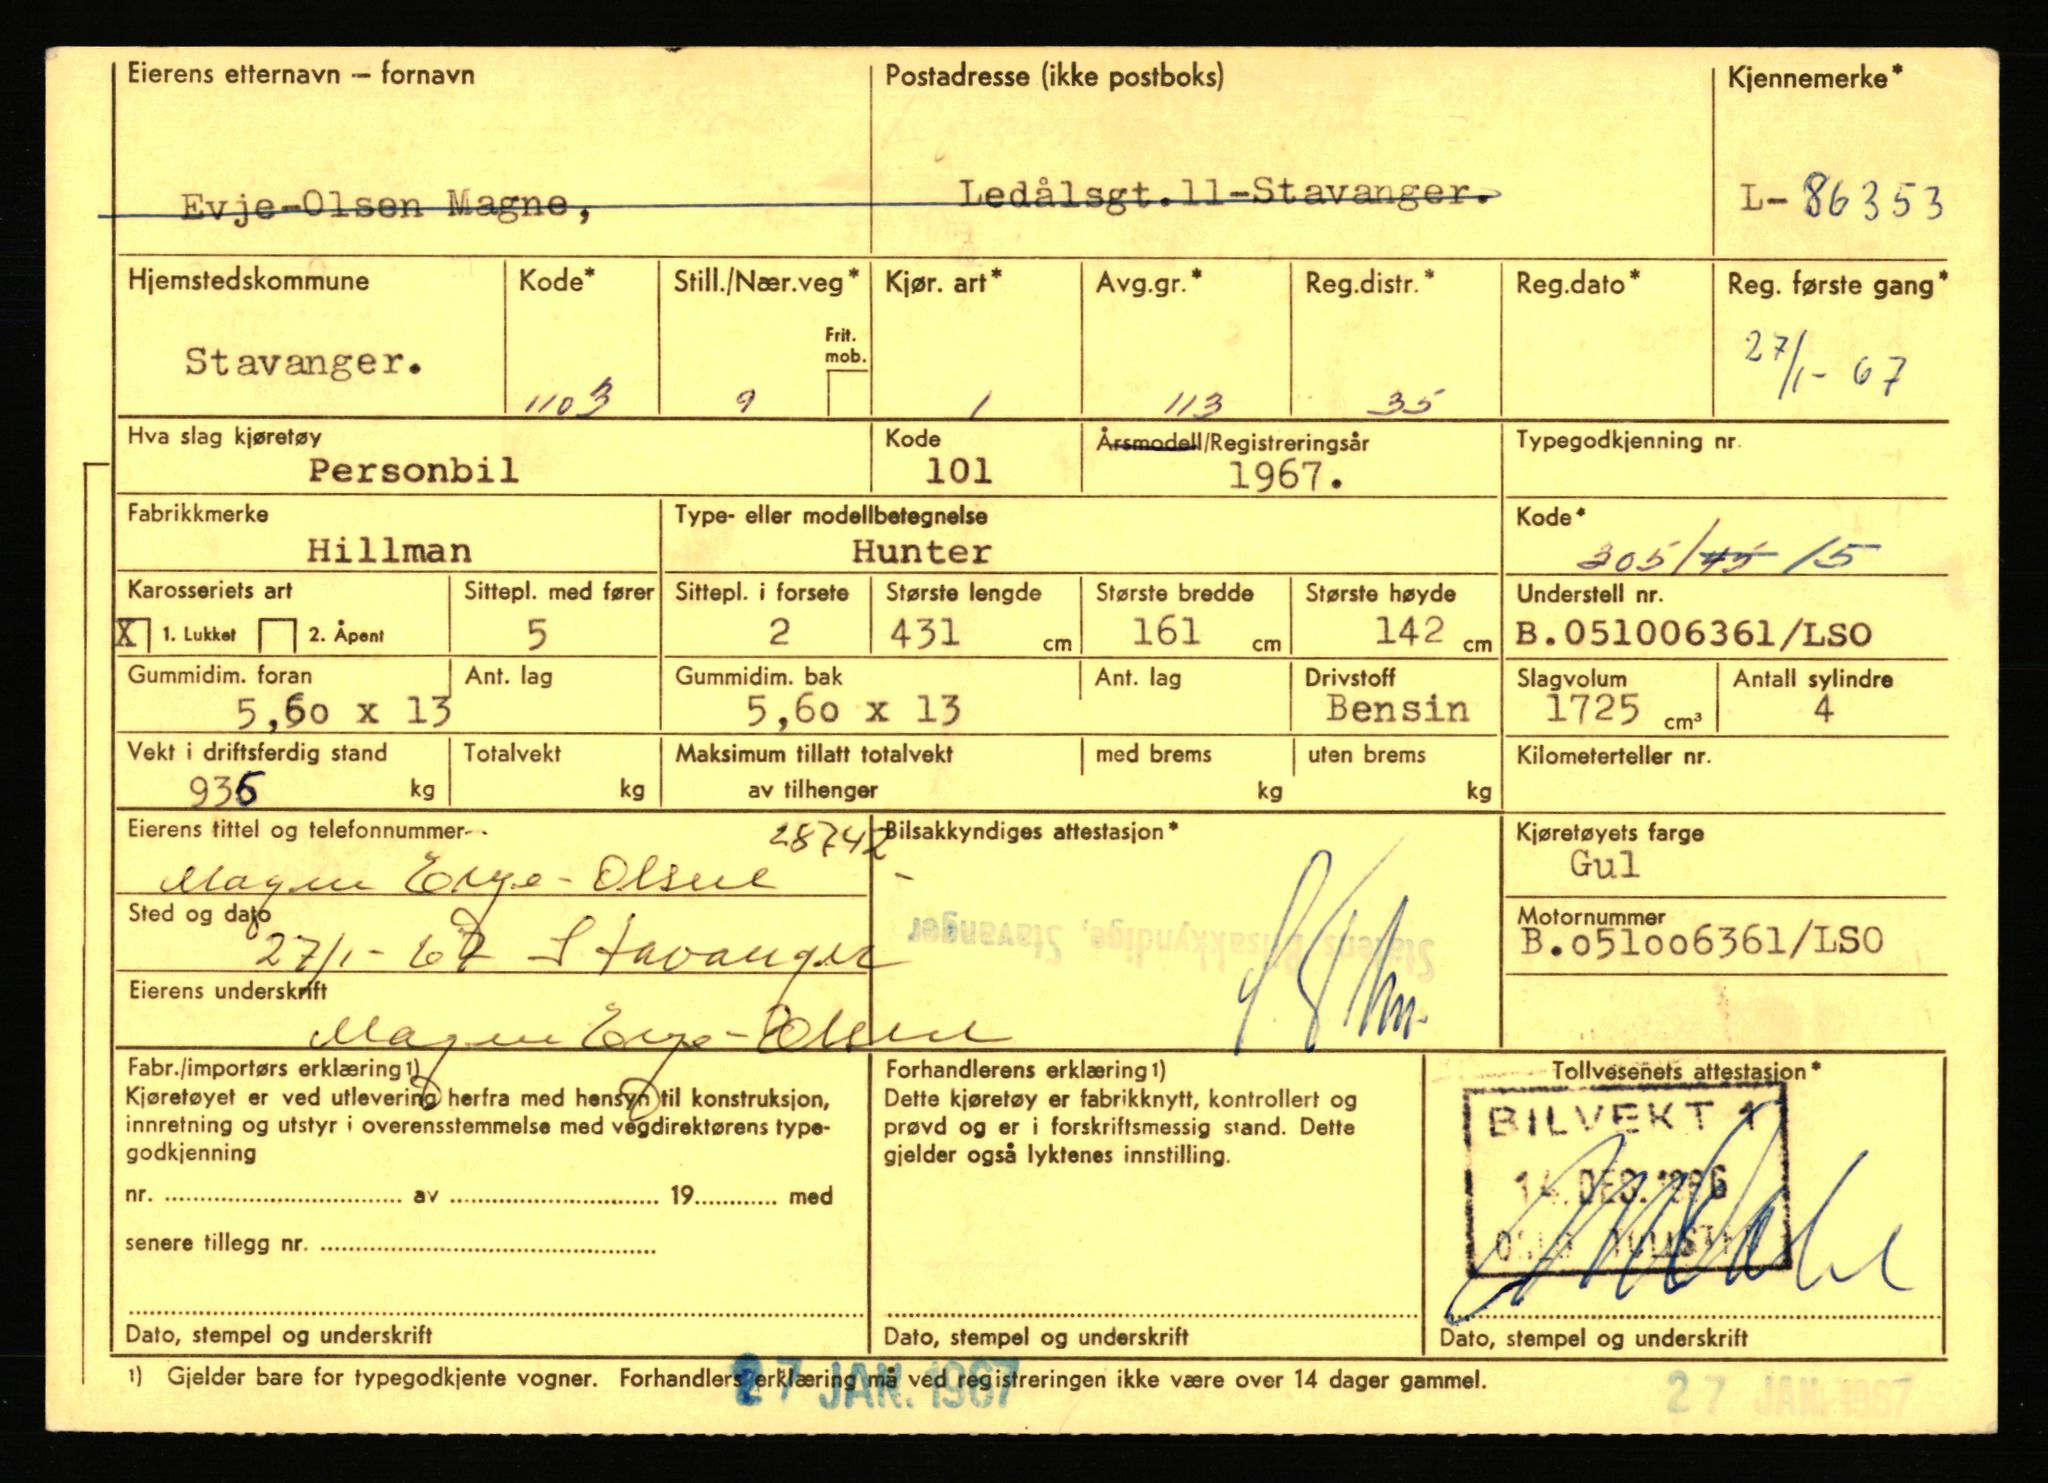 Eierens etternavn — fornavn
Postadresse (ikke postboks)
Kjennemerke*
Evje-Olsen Magne,
Ledålsgt.11-Stavanger.
L-86353
Hjemstedskommune
Kode*
Still./Nær.veg*
Kjør. art*
Avg.gr.*
Reg.distr.*
Reg.dato*
Reg. første gang*
Frit.
mob.
Stavanger.
1103
9
1
113
35
27/1-67
Hva slag kjøretøy
Kode
Årsmodell/Registreringsår
Typegodkjenning nr.
Personbil
101
1967.
Fabrikkmerke
Type- eller modellbetegnelse
Kode*
Hillman
Hunter
305/45/5
Karosseriets art
Sittepl. med fører
Sittepl. i forsete
Største lengde
Største bredde
Største høyde
Understell nr.
X 1. Lukket
2. Åpent
5
2
431 cm
161 cm
142 cm
B.051006361/LSO
Gummidim. foran
Ant. lag
Gummidim. bak
Ant. lag
Drivstoff
Slagvolum
Antall sylindre
5,60 x 13
5,60 x 13
Bensin
1725 cm³
4
Vekt i driftsferdig stand
Totalvekt
Maksimum tillatt totalvekt
med brems
uten brems
Kilometerteller nr.
935 kg
kg
av tilhenger
kg
kg
Eierens tittel og telefonnummer
28742
Bilsakkyndiges attestasjon*
Kjøretøyets farge
Magne Evje-Olsen
Gul
Sted og dato
Statens Bilsakkyndige, Stavanger
Motornummer
27/1-67 Stavanger
B.051006361/LSO
Eierens underskrift
Magne Evje-Olsen
Fabr./importørs erklæring 1)
Forhandlerens erklæring 1)
Tollvesenets attestasjon*
Kjøretøyet er ved utlevering herfra med hensyn til konstruksjon,
innretning og utstyr i overensstemmelse med vegdirektørens type-
godkjenning
Dette kjøretøy er fabrikknytt, kontrollert og
prøvd og er i forskriftsmessig stand. Dette
gjelder også lyktenes innstilling.
BILVEKT 1
14. DES. 1966
nr. .......... av .......... 19.......... med
senere tillegg nr. ..........
Dato, stempel og underskrift
Dato, stempel og underskrift
Dato, stempel og underskrift
1) Gjelder bare for typegodkjente vogner. Forhandlers erklæring må ved registreringen ikke være over 14 dager gammel.
27 JAN. 1967
27 JAN. 1967